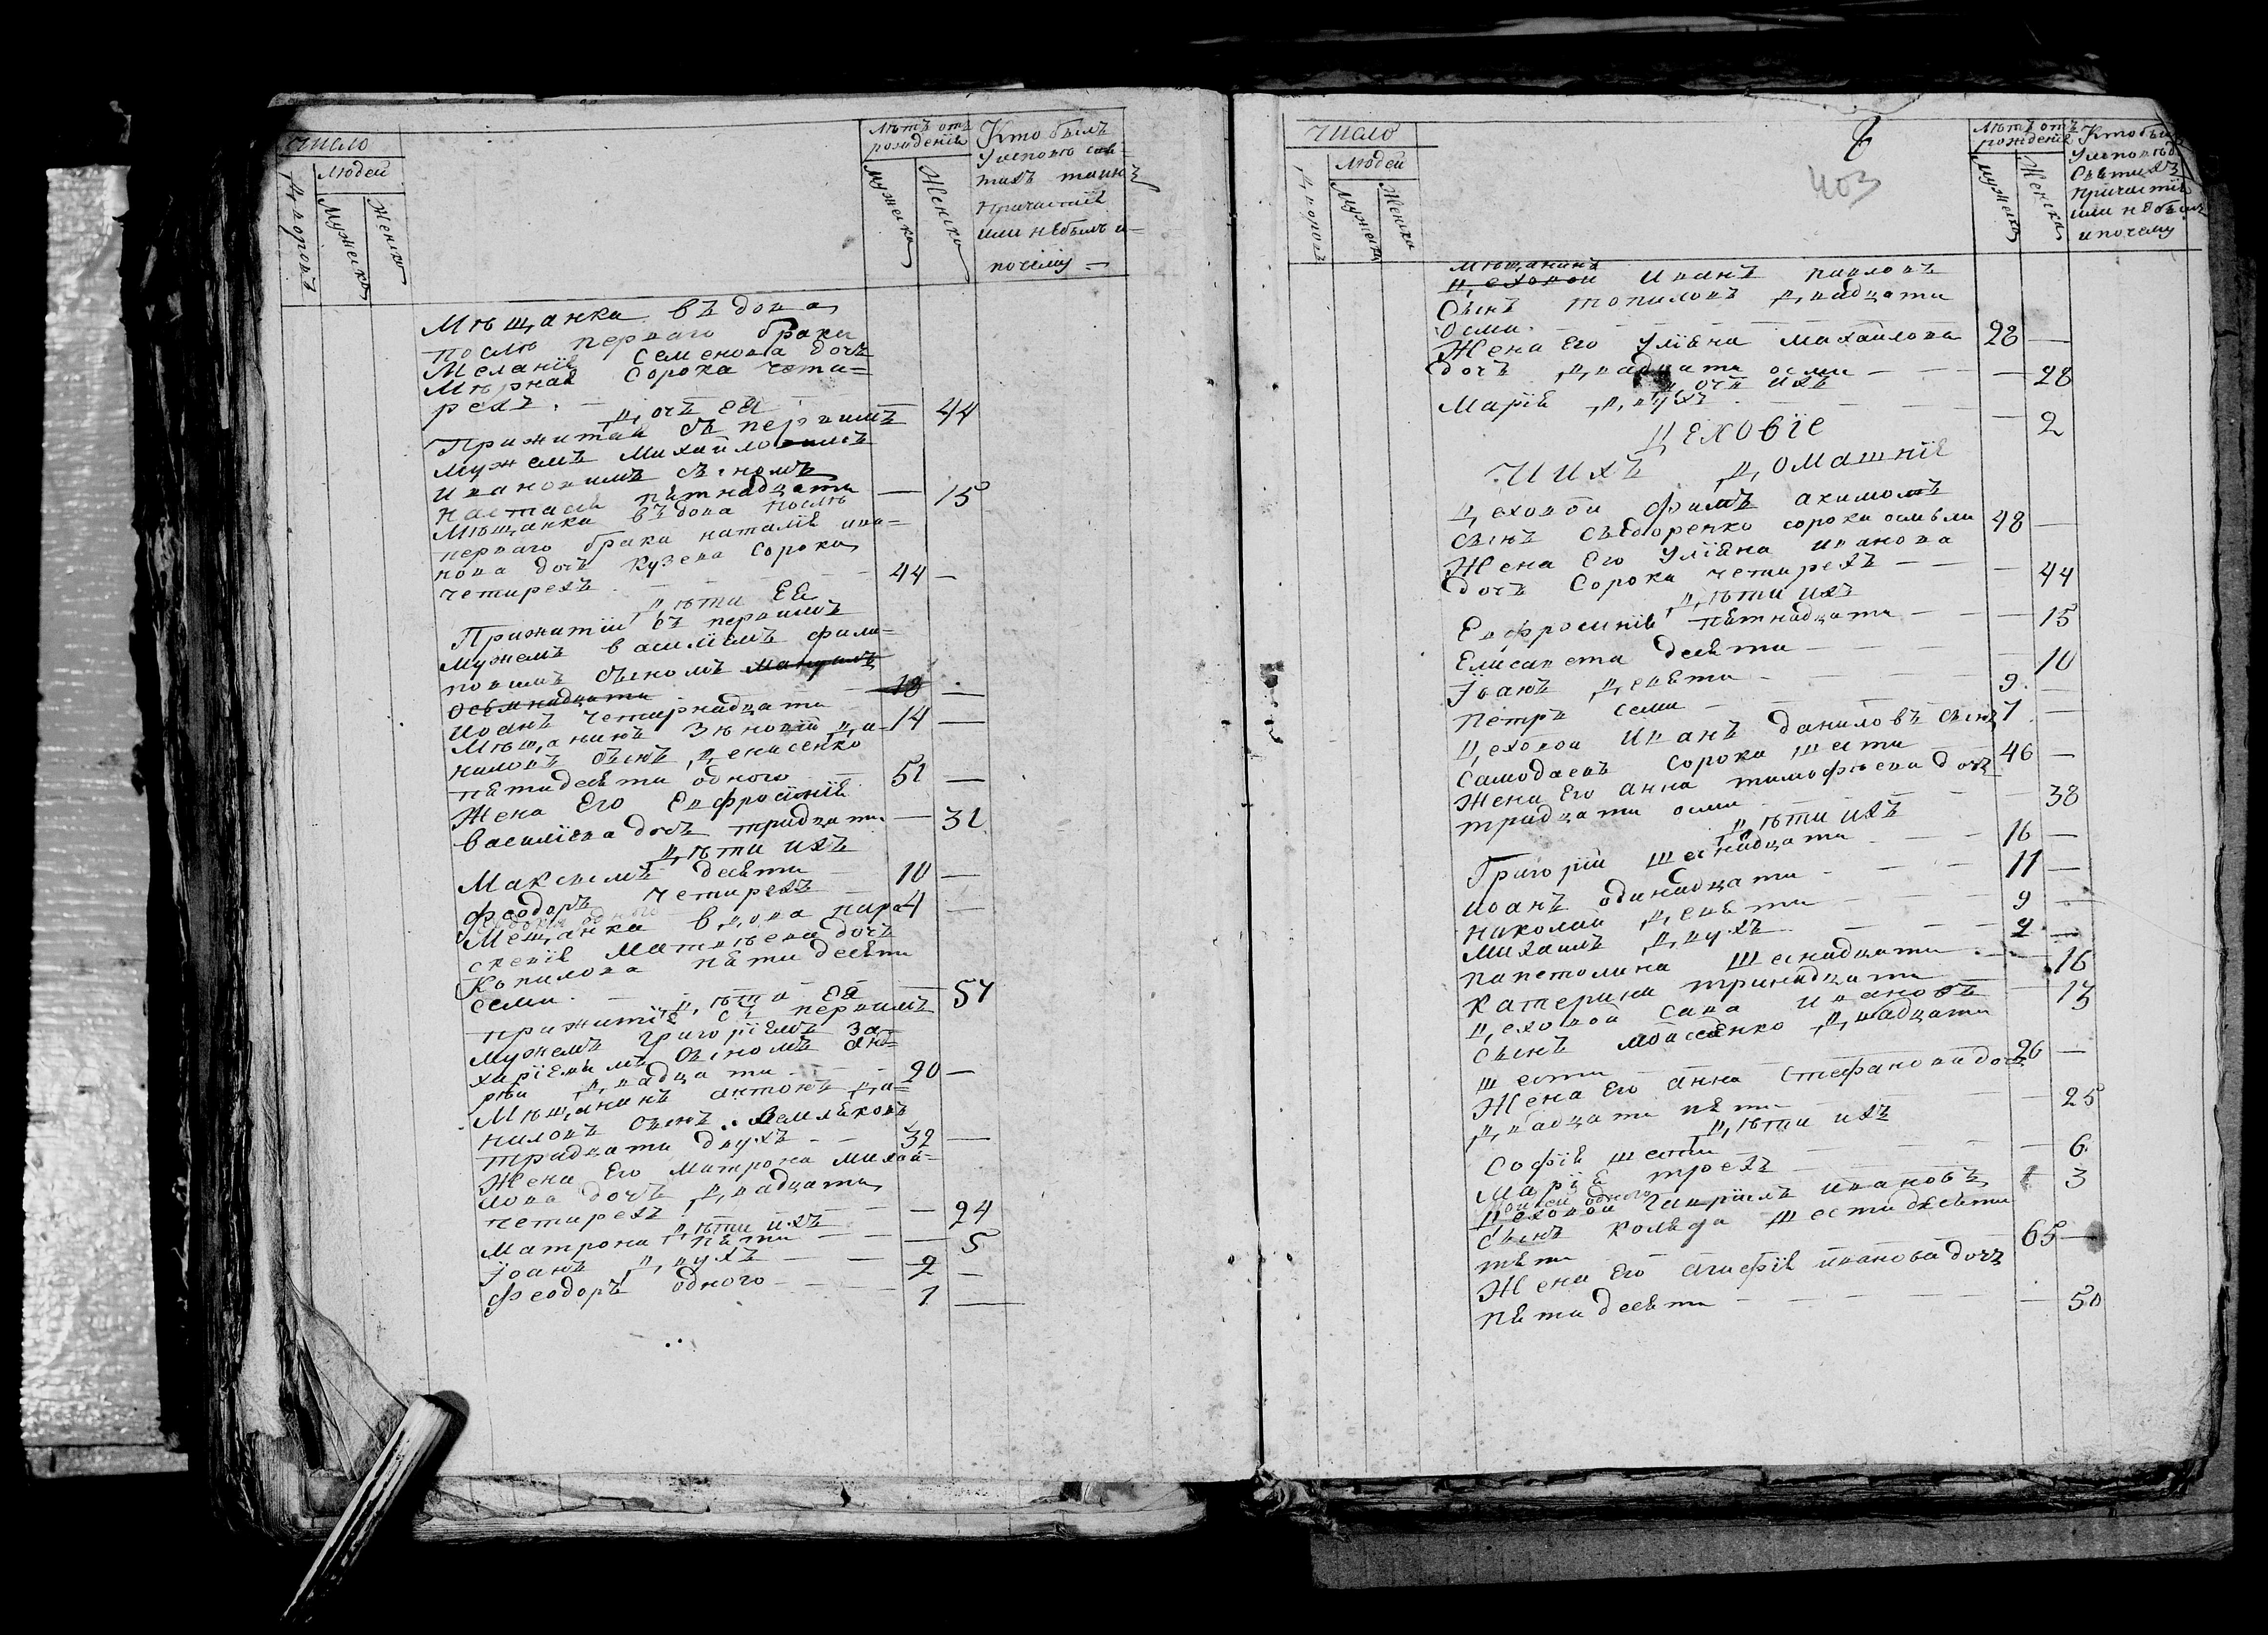 число
Людей
Дворовъ
Мужеска
Женска
Лѣтъ отъ
рожденія
мужеска
Женска
Кто былъ
Уисповѣ свя-
тихъ таинъ
Причастія
или небылъ и-
почему —
Мѣщанка въдова
послѣ перваго брака
Меланія Семенова дочъ
Мѣрная Сорока чети-
рехъ. — 44
Дочъ ея
Прижитая съ первимъ
мужемъ Михайломъ
Ивановимъ сыномъ
Настасія пятнадцати — 15
Мѣщанка въдова послѣ
перваго брака наталія ива-
нова дочъ Кузева Сорока
четирехъ. — 44 —
Дѣти Ея
Прижитіи съ первимъ
мужемъ василіемъ фили-
повимъ сыномъ
осьмнадцати — 18 —
Иоанъ четирнадцати 14 —
Мѣщанинъ Зѣновій Да-
ниловъ сынъ Денисенко
пятидесяти одного 51 —
Жена Его Евфросинія
василіева дочъ тридцати — 31
Дѣти ихъ
Максымъ десяти 10 —
Феодоръ четирехъ 4 —
Мещанка вдова пара-
скевія Матвѣева дочъ
Копилова пятидесяти
семи. — 57
Дѣти ея
прижитіе съ первимъ
мужемъ григоріемъ за-
харіевимъ сыномъ Ан-
рѣй Двадцати — 20 —
Мѣщанинъ антонъ Да-
ниловъ сынъ Земляковъ
тридцати двухъ — 32 —
Жена Его Матрона михай-
лова дочъ Двадцати
четирехъ — 24
Дѣти ихъ
Матрона пяти — 5
Іоанъ Двухъ — 2 —
Феодоръ одного — 1 —
число
Людей
Дворовъ
Мужеска
Женска
403
Лѣтъ отъ
рожденія
мужеска
Женска
Кто былъ
Уисповѣд
Святихъ
Причастія
или небылъ
и почему
Мѣщанинъ
Цеховой Иванъ павловъ
Сынъ Топиловъ Двадцати
осми. 28 —
Жена Его Уліяна Михайлова
дочъ Двадцати осми — 28
Дочъ ихъ
Марія Двухъ — 2
Цеховіе
Ихъ Домашнія
Цеховой Фимъ акимовъ
сынъ Сыдоренко сорока осьми 48 —
Жена Его Уліяна иванова
дочъ Сорока четирехъ — 44
Дѣти ихъ
Евфросинія пятнадцати — 15
Елисавета десяти — 10
Іоанъ Девяти — 9 —
Петръ семи — 7 —
Цеховой Иванъ даниловъ сынъ
Самодаевъ Сорока шести 46 —
Жена Его анна тимофѣева дочъ
тридцати осми — 38
Дѣти ихъ
Григорій Шеснадцати 16 —
Иоанъ одинадцати — 11 —
николай Девяти — 9 —
Михаилъ Двухъ — 2 —
Капетолина Шеснадцати — 16
Катерина тринадцати — 13
Цеховой Сава ивановъ
Сынъ Мойсеенко Двадцати
шести — 26 —
Жена Его Анна Стефанова дочъ
Двадцати пяти — 25
Дѣти ихъ
Софія шести — 6
Марія трехъ — 3
одного 1
Цеховой Гавріилъ ивановъ
Сынъ Коляда Шестидесяти
пяти 65 —
Жена Его Агафія иванова дочъ
пятидесяти — 50